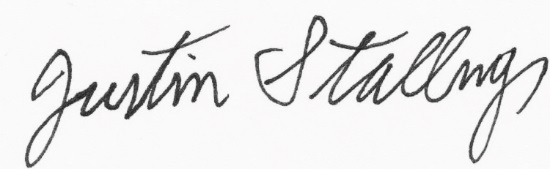 Justin Stallings